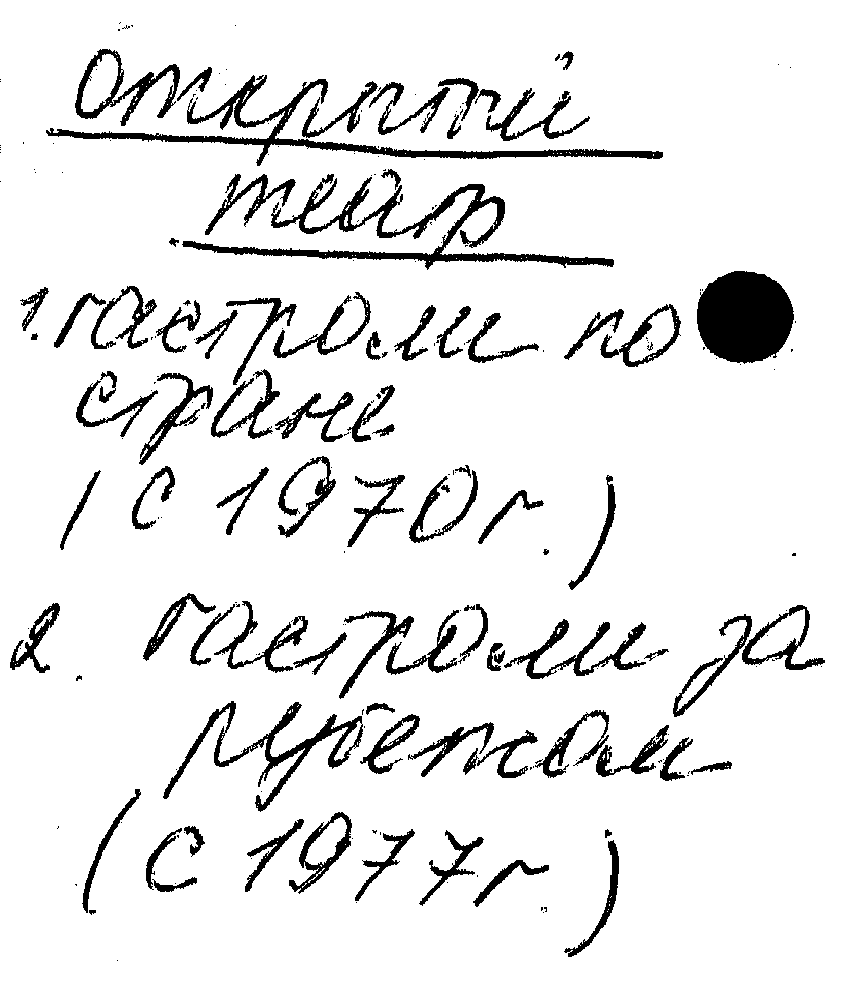 Открытый
театр
1. гастроли по
стране
(с 1970 г.)
2. гастроли за
рубежом
(с 1977 г.)